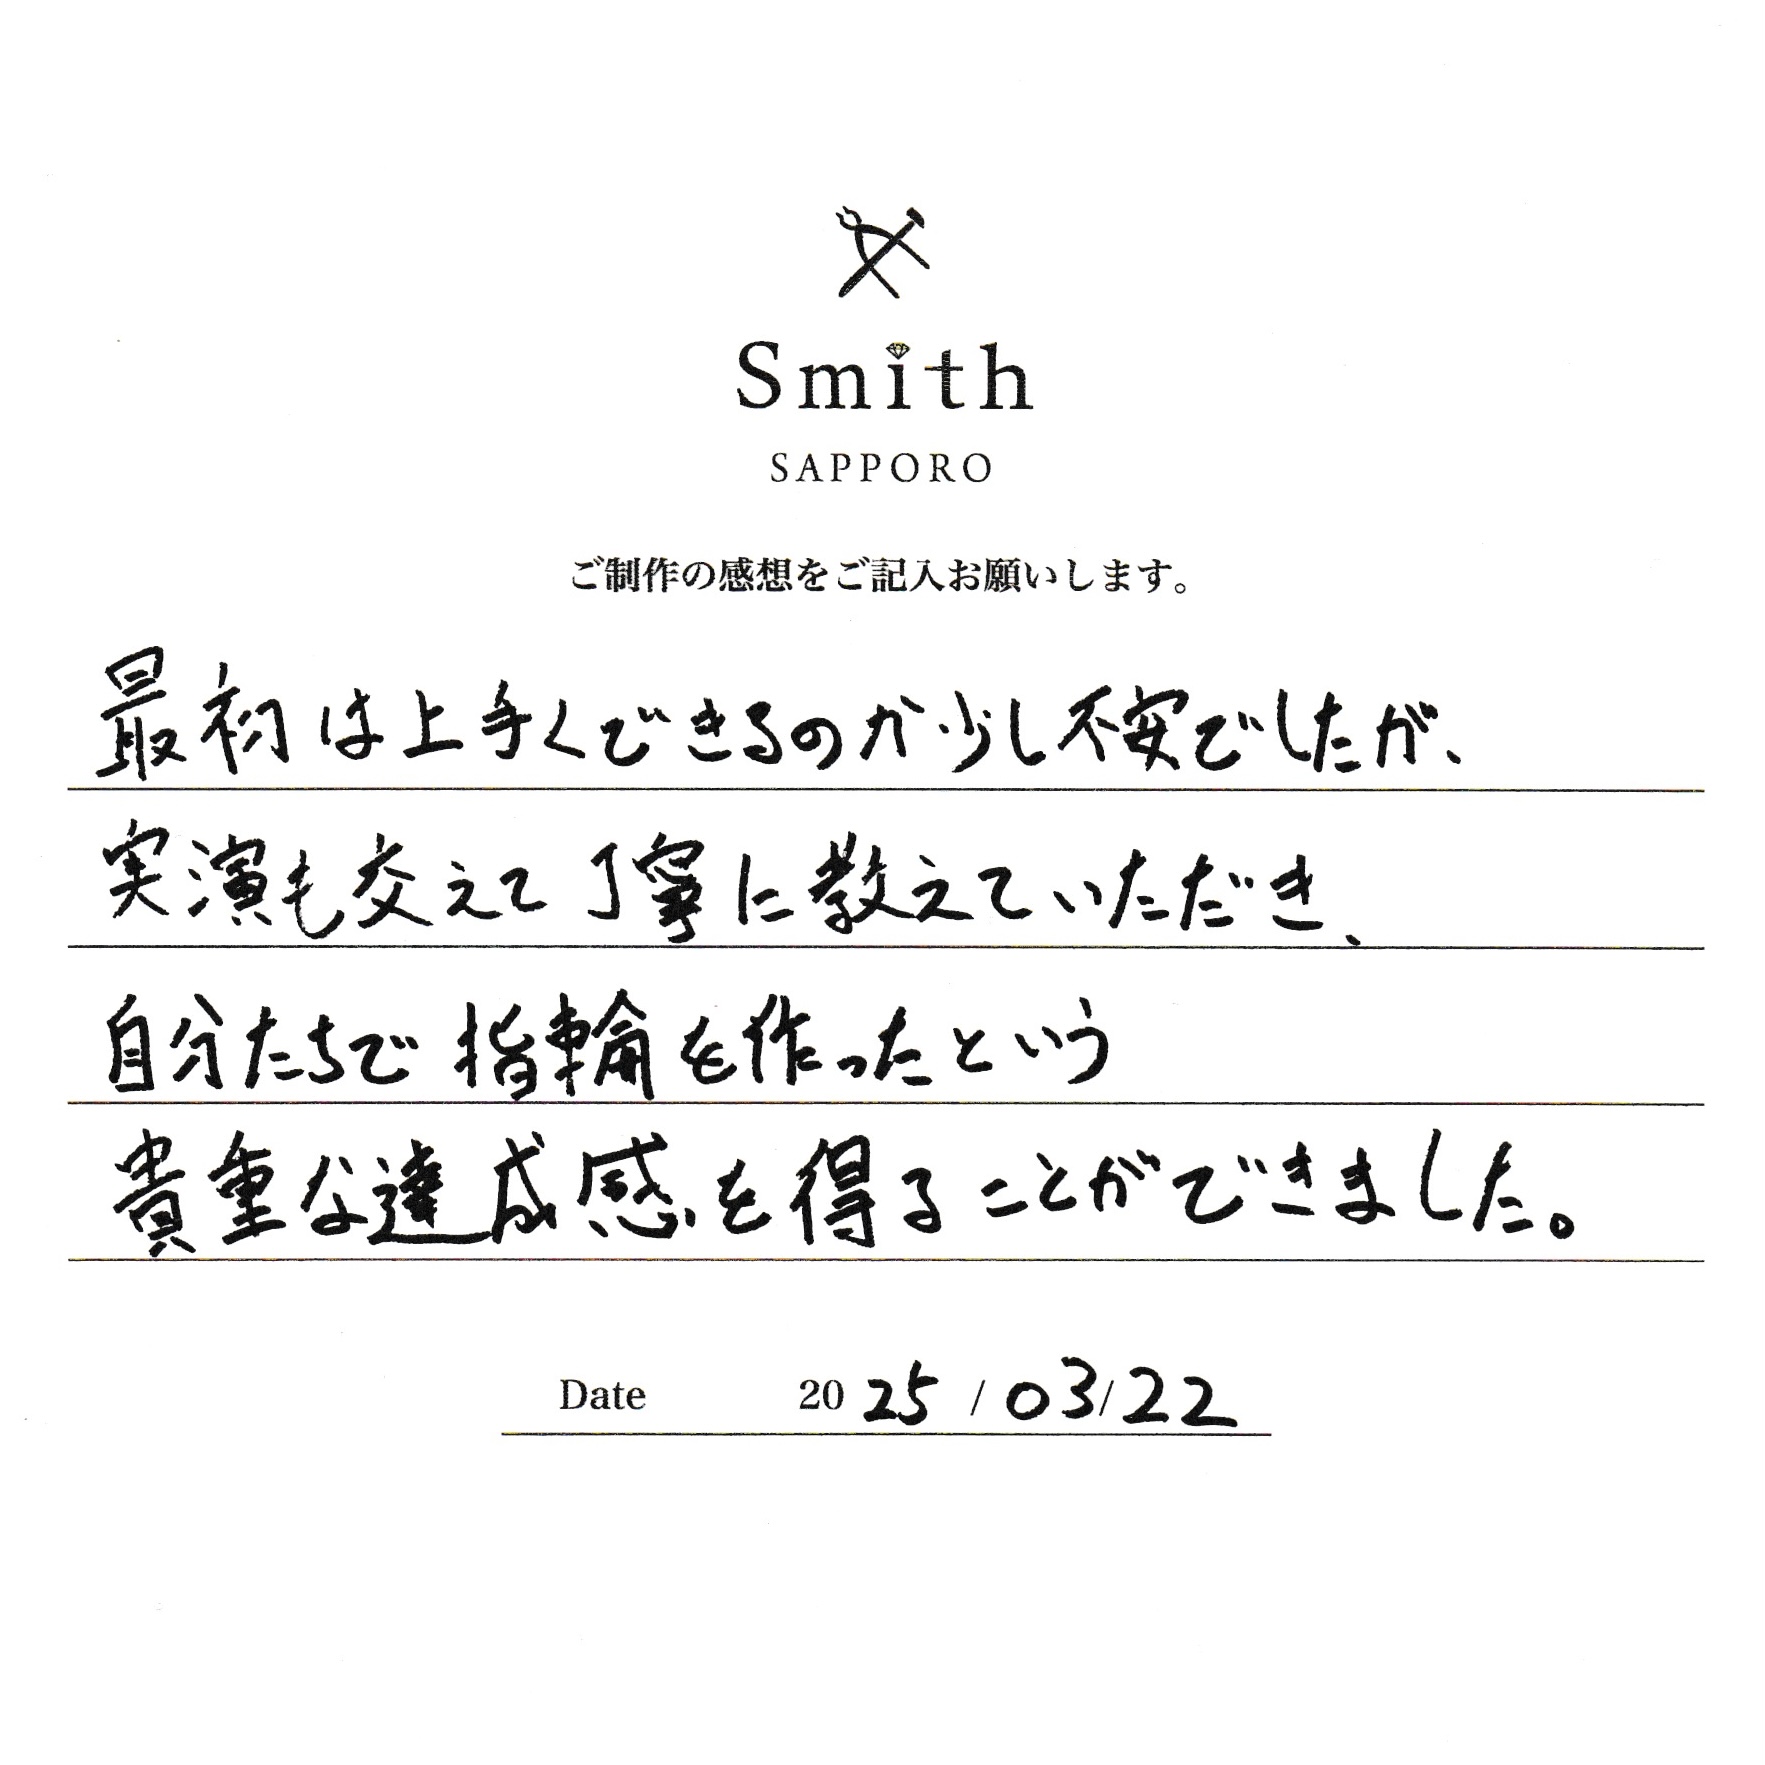 Smith
SAPPORO
ご制作の感想をご記入お願いします。
最初は上手くできるのか少し不安でしたが、
実演も交えて丁寧に教えていただき、
自分たちで指輪を作ったという
貴重な達成感を得ることができました。
Date 2025/03/22